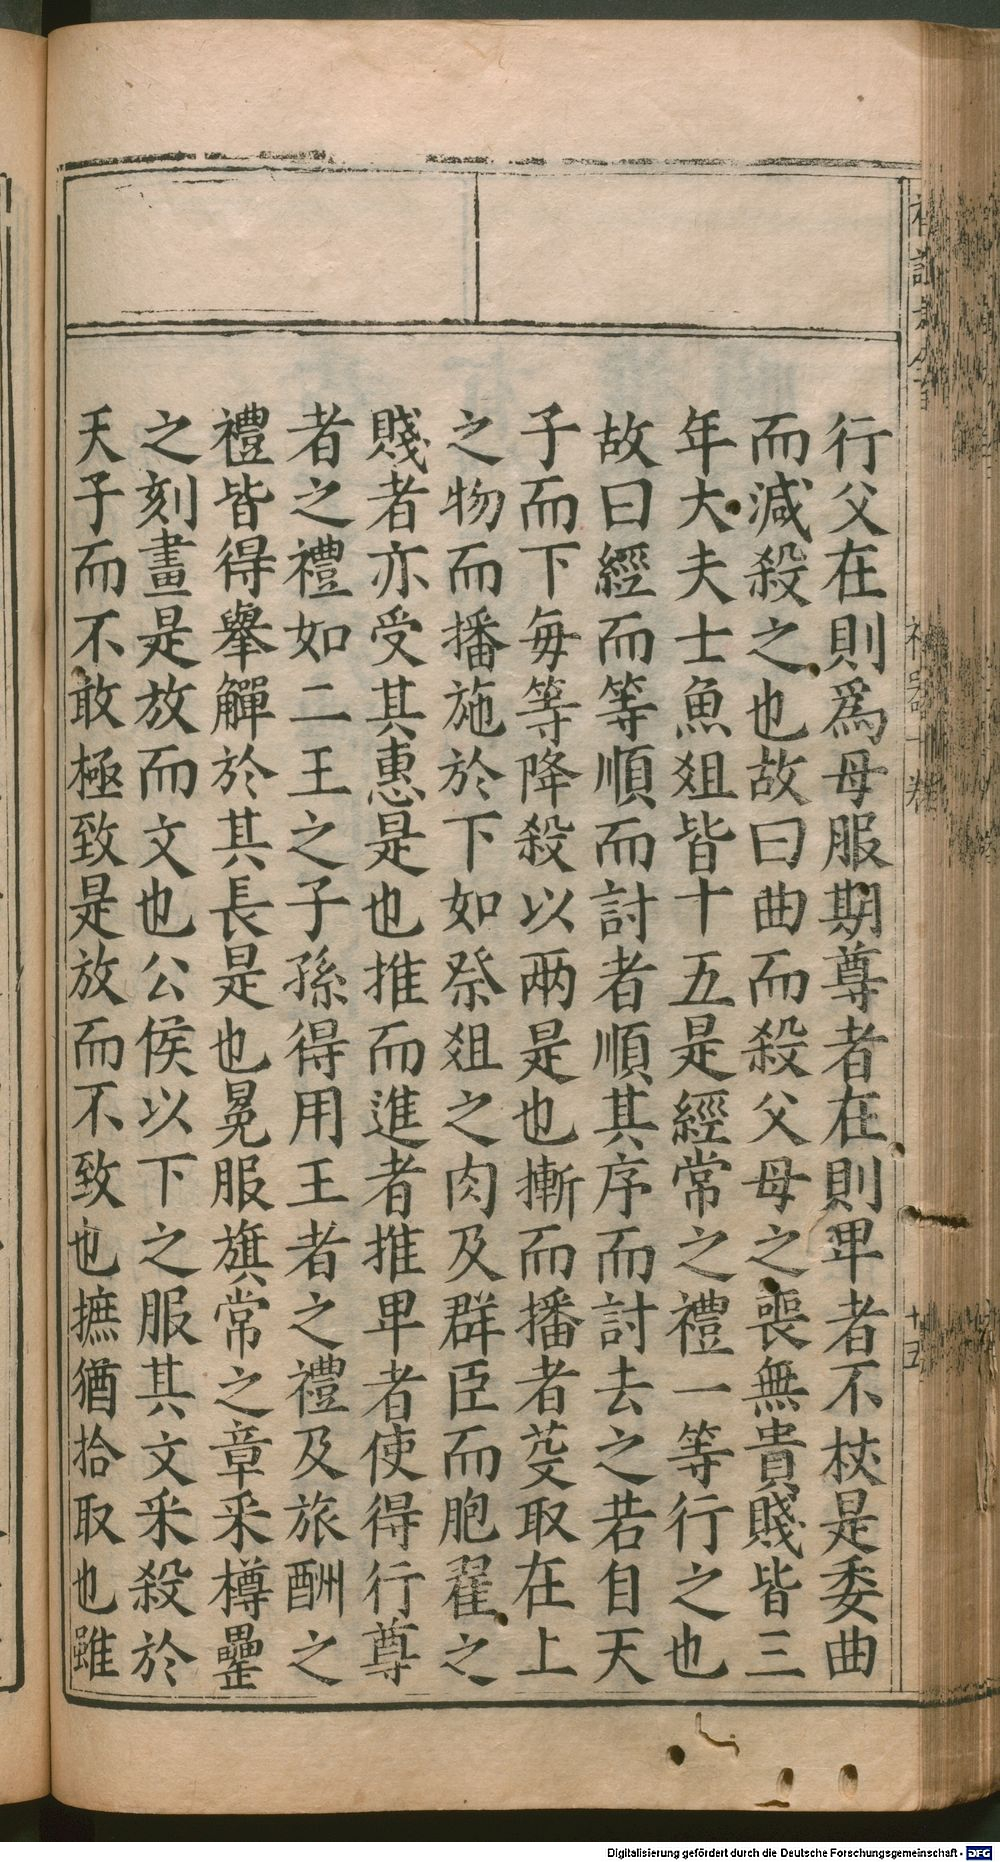 行父在則爲母服期尊者在則卑者不杖是委曲
而減殺之也故曰曲而殺父母之喪無貴賤皆三
年大夫士魚俎皆十五是經常之禮一等行之也
故曰經而等順而討者順其序而討去之若自天
子而下每等降殺以兩是也摲而播者芟取在上
之物而播施於下如祭俎之肉及群臣而胞翟之
賤者亦受其惠是也推而進者推卑者使得行尊
者之禮如二王之子孫得用王者之禮及旅酬之
禮皆得舉觶於其長是也冕服旗常之章采樽罍
之刻畫是放而文也公侯以下之服其文采殺於
天子而不敢極致是放而不致也摭猶拾取也雖
禮器十卷
十五
Digitalisierung gefördert durch die Deutsche Forschungsgemeinschaft - DFG